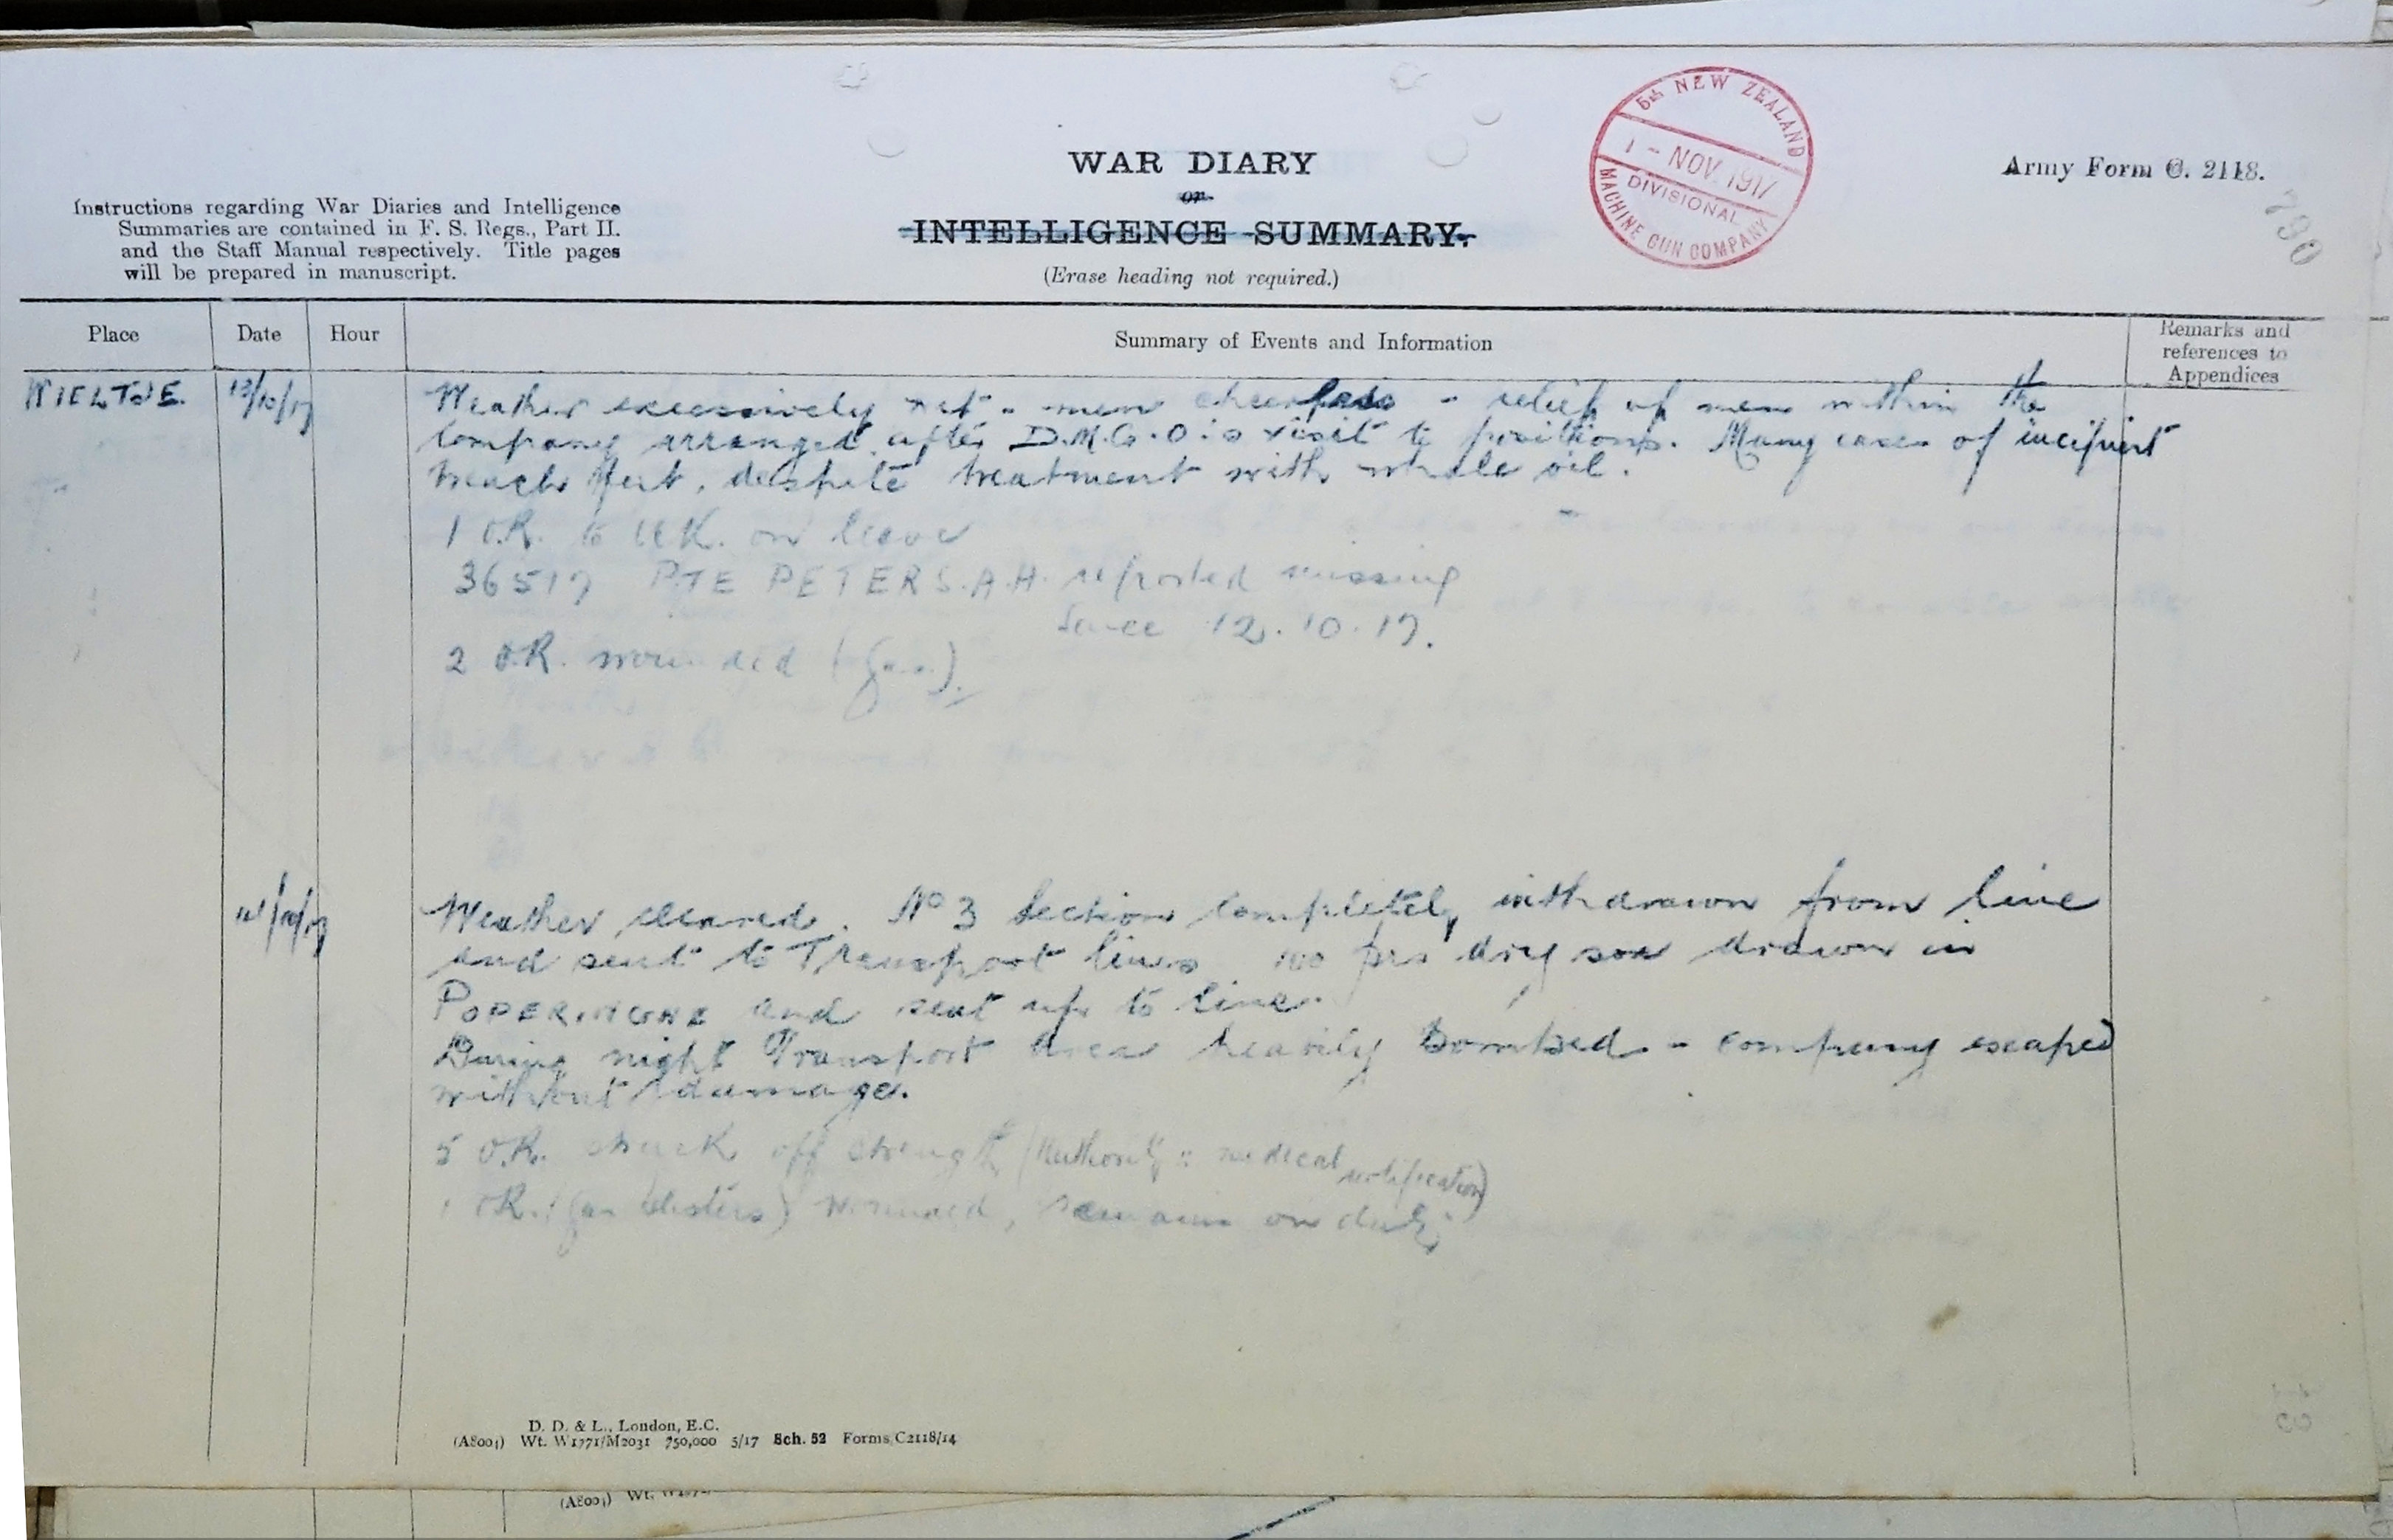 5th NEW ZEALAND
1 - NOV. 1917
DIVISIONAL
MACHINE GUN COMPANY
WAR DIARY
or
INTELLIGENCE SUMMARY.
(Erase heading not required.)
Army Form C. 2118.
790
Instructions regarding War Diaries and Intelligence
Summaries are contained in F. S. Regs., Part II.
and the Staff Manual respectively. Title pages
will be prepared in manuscript.
Place
Date
Hour
Summary of Events and Information
Remarks and
references to
Appendices
WIELTJE.
13/10/17
Weather excessively wet - men cheerful - relief of men within the
Company arranged after D.M.G.O's visit to positions. Many cases of incipient
trench feet, despite treatment with whale oil.
1 O.R. to U.K. on leave
36517 PTE PETERS.A.H. reported missing
since 12.10.17.
2 O.R. wounded (gas).
14/10/17
Weather cleared. No 3 Section completely withdrawn from line
and sent to Transport lines 100 prs dry sox drawn in
POPERINGHE and sent up to line.
During night Transport area heavily bombed - company escaped
without damage.
5 O.R. struck off strength (Authority: medical notification)
1 O.R. (gas blisters) wounded, remains on duty
13
D. D. & L., London, E.C.
(A8001) Wt. W1771/M2031 750,000 5/17 Sch. 52 Forms/C2118/14
(A8001) Wt.